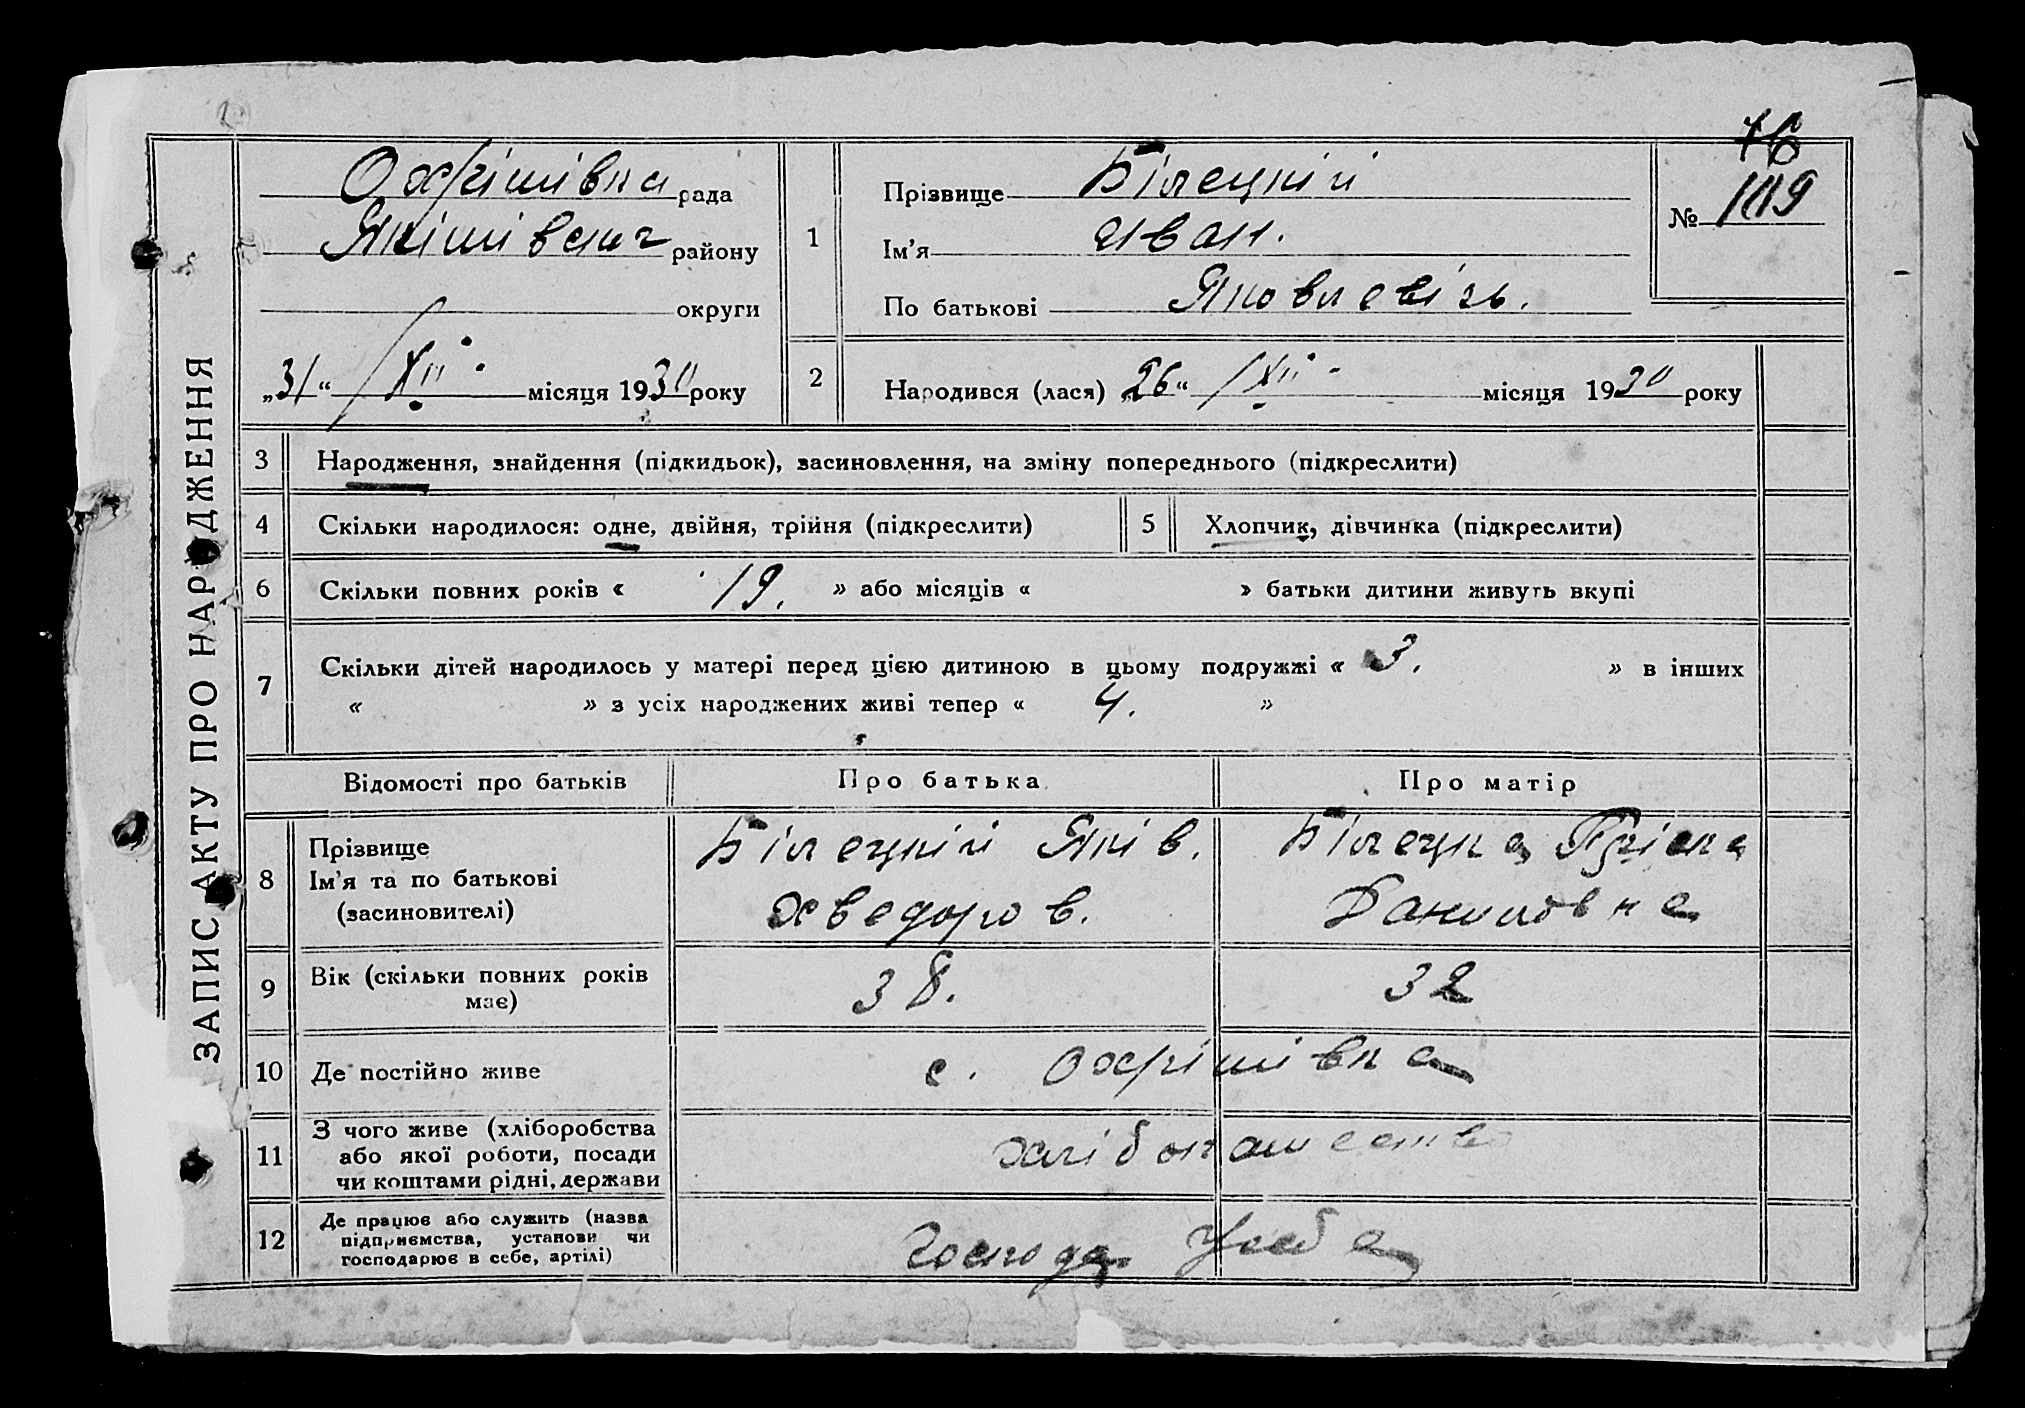 ЗАПИС АКТУ ПРО НАРОДЖЕННЯ
Охрімівка рада
Якімівськ района району
округи
„31“ /XII місяця 1930 року
1
Прізвище Білецкій
Ім’я Иван.
По батькові Яковлевізь.
76
№ 109
2
Народився (лася) „26“ /XII місяця 1930 року
3 Народження, знайдення (підкидьок), васиновлення, на зміну попереднього (підкреслити)
4 Скільки народилося: одне, двійня, трійня (підкреслити)
5 Хлопчик, дівчинка (підкреслити)
6 Скільки повних років « 19. » або місяців « » батьки дитини живуть вкупі
7 Скільки дітей народилось у матері перед цією дитиною в цьому подружжі « 3. » в інших
« » з усіх народжених живі тепер « 4. »
Відомості про батьків Про батька Про матір
8 Прізвище
Ім’я та по батькові
(засиновителі)
Білецкій Яків.
Хведоров.
Білецка
Даниловна
9 Вік (скільки повних років
має)
38.
32
10 Де постійно живе
с. Охрімівка
11 З чого живе (хліборобства
або якої роботи, посади
чи коштами рідні, держави
хлібопашество
12 Де працює або служить (назва
підприємства, установи чи
господарює в себе, артілі)
Господа Усеба